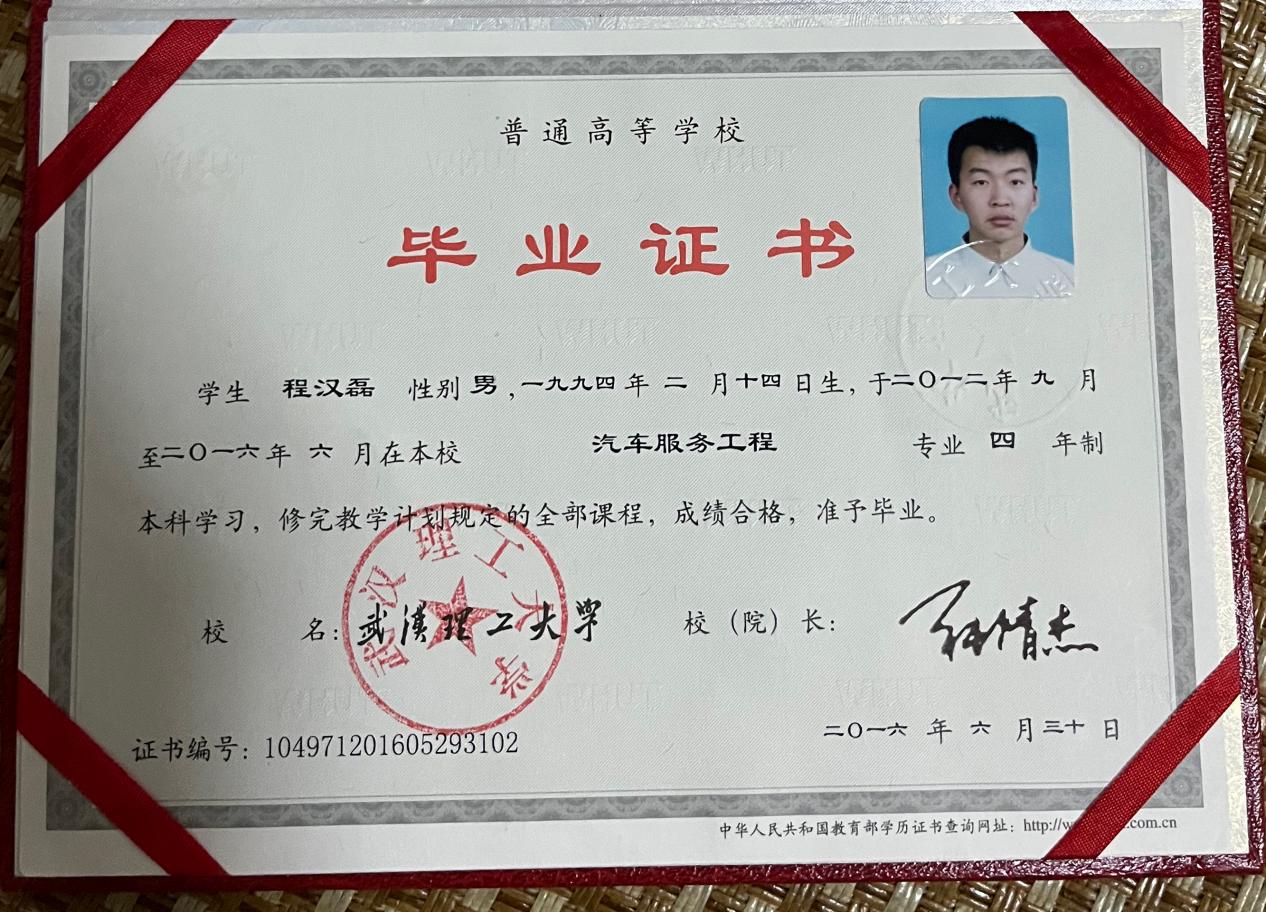 普通高等学校
毕业证书
学生 程汉磊 性别 男,一九九四年 二 月十四日生,于二〇一二年 九 月
至二〇一六年 六 月在本校 汽车服务工程 专业 四 年制
本科学习,修完教学计划规定的全部课程,成绩合格,准予毕业。
校 名:武漢理工大学 校(院)长:
武汉理工大学
二〇一六 年 六 月三十 日
证书编号:104971201605293102
中华人民共和国教育部学历证书查询网址:http://w .com.cn